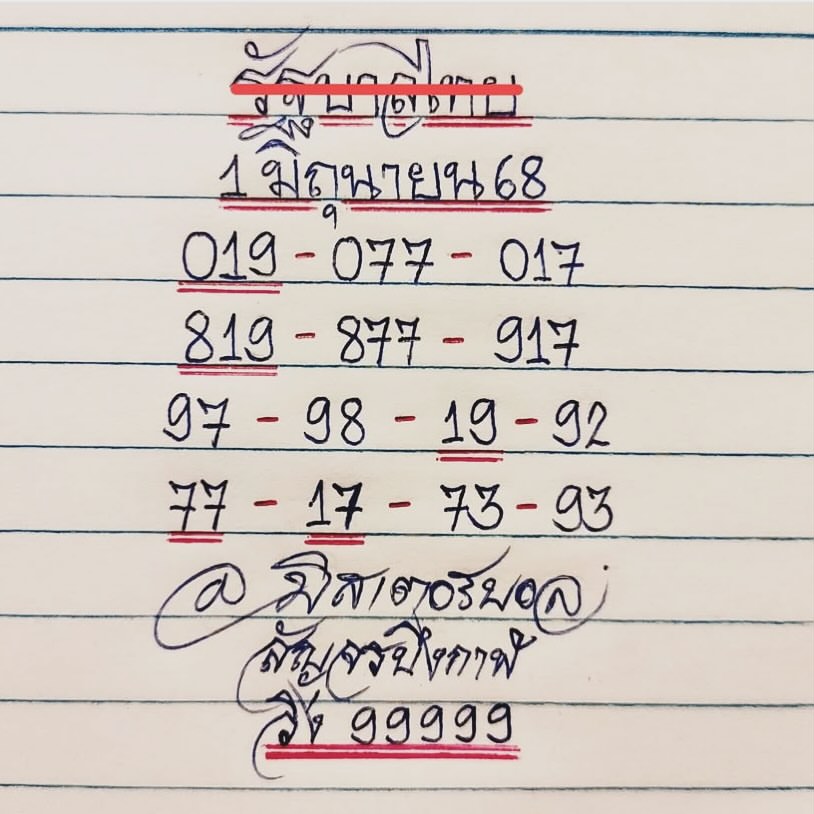 รัฐบาลไทย
1 มิถุนายน 68
019 - 077 - 017
819 - 877 - 917
97 - 98 - 19 - 92
77 - 17 - 73 - 93
@ มิสเตอร์บอล
สัญจรปิงกาฬ
วัง 99999